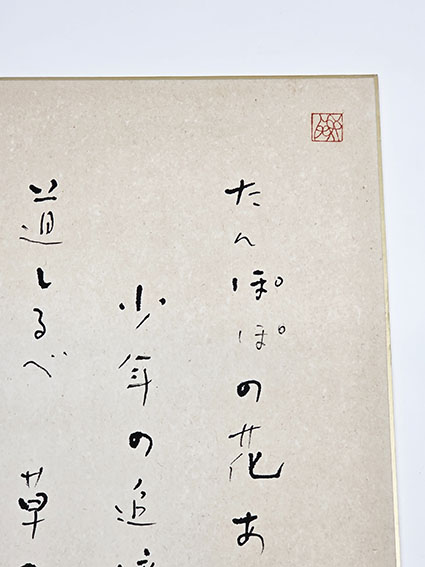 たんぽぽの花あ
少年の追憶
道しるべ 草